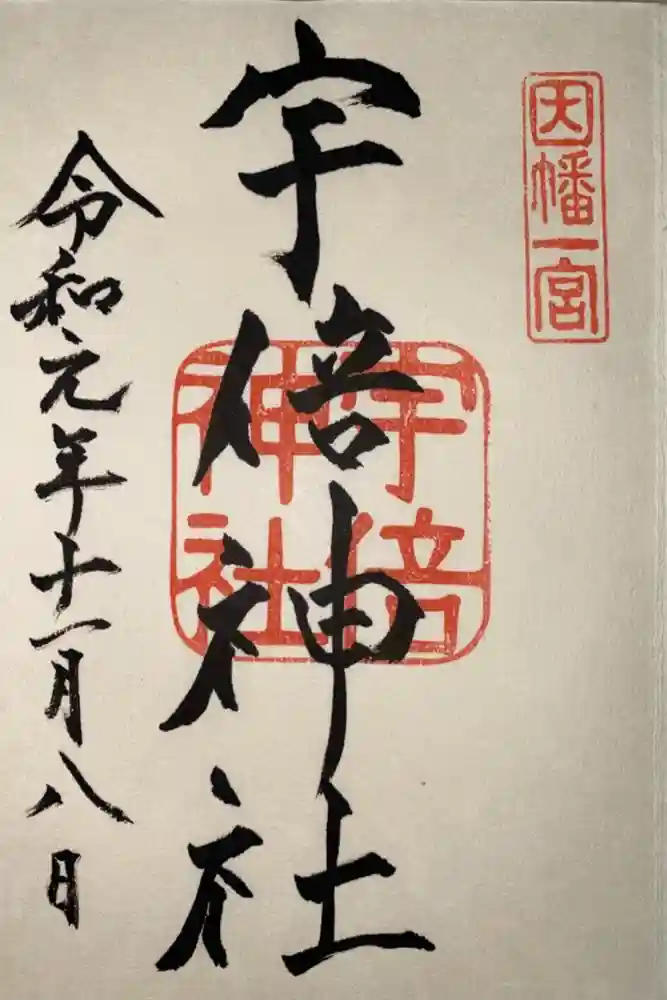 因幡一宮
宇倍神社
宇倍
神社
令和元年十一月八日